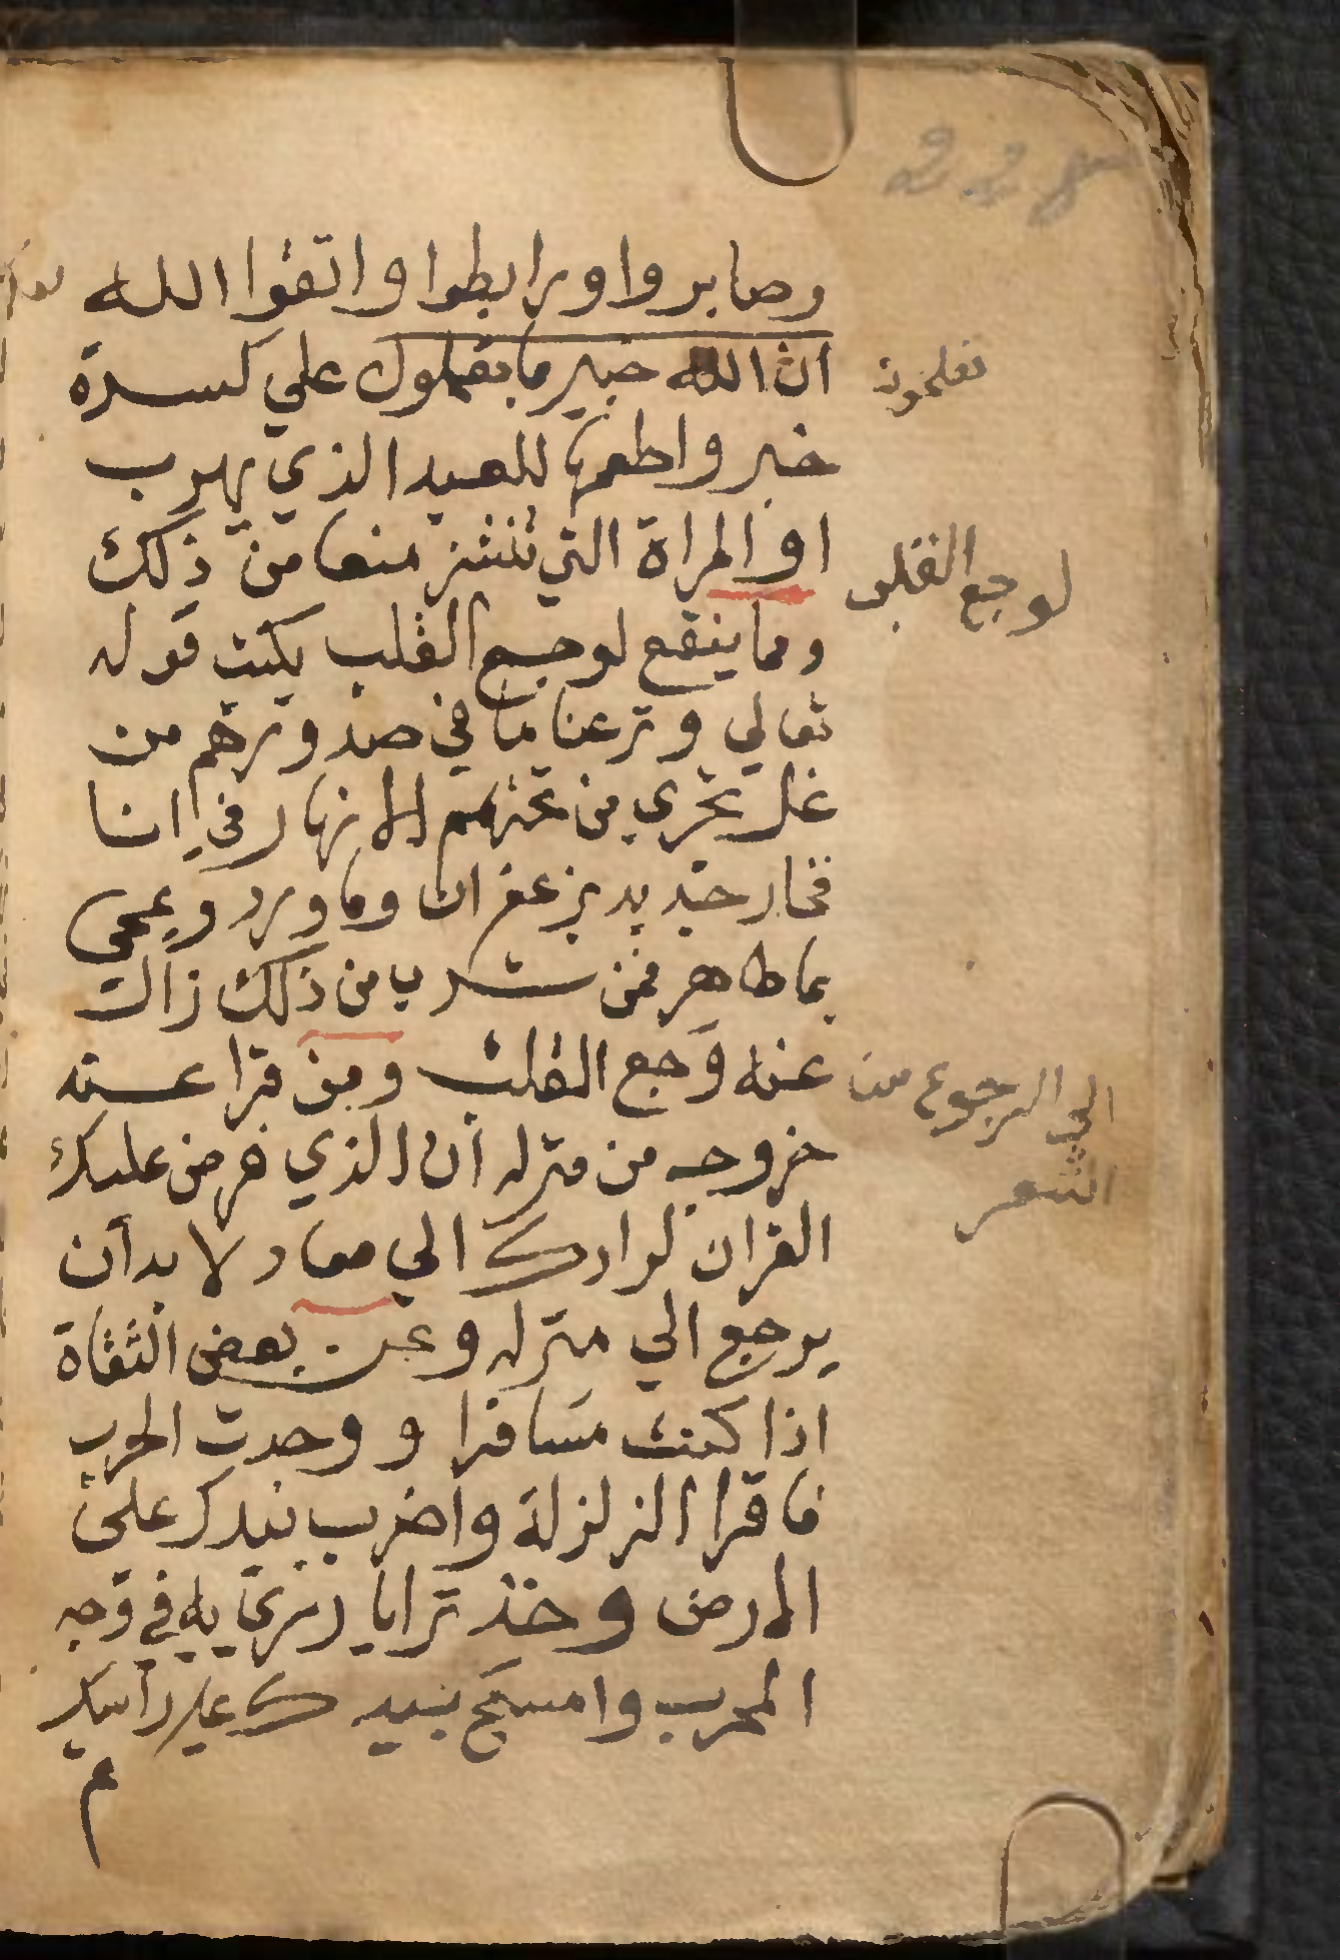 وصابروا ورابطوا واتقوا الله
ان الله خبير ما بعملون علي كسرة
تفلحون
خبز واطعمها للعبد الذي يهرب
او المراة التي تنشز منها من ذلك
لوجع القلب
ومما ينفع لوجع القلب يكتب قوله
تعالي ونزعنا ما في صدورهم من
غل تجري من تحتهم الانهار في انا
فخار جديد بزعفران وما ورد ومحى
بما طاهر فمن شرب من ذلك زالت
عنه وجع القلب ومن قرا عند
الي الرجوع من
السفر
خروجه من منزله ان الذي فرض عليك
القران لرادك الي معاد لا بد ان
يرجع الي منزله وعن بعض الثقاة
اذا كنت مسافرا ووجدت الحرب
فاقرا الزلزلة واضرب بيدك على
الارض وخذ ترابا وترمي به في وجه
المحرب وامسح بيدك علي راسك
م